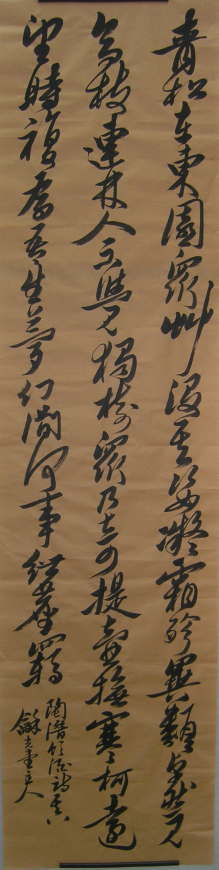 青松在東園眾艸沒其姿凝霜殄異類卓然見
高枝連林人不覺獨樹眾乃奇提壺撫寒柯遠
望時復為吾生夢幻間何事紲塵羈
陶潛飲酒詩其八
龢主人